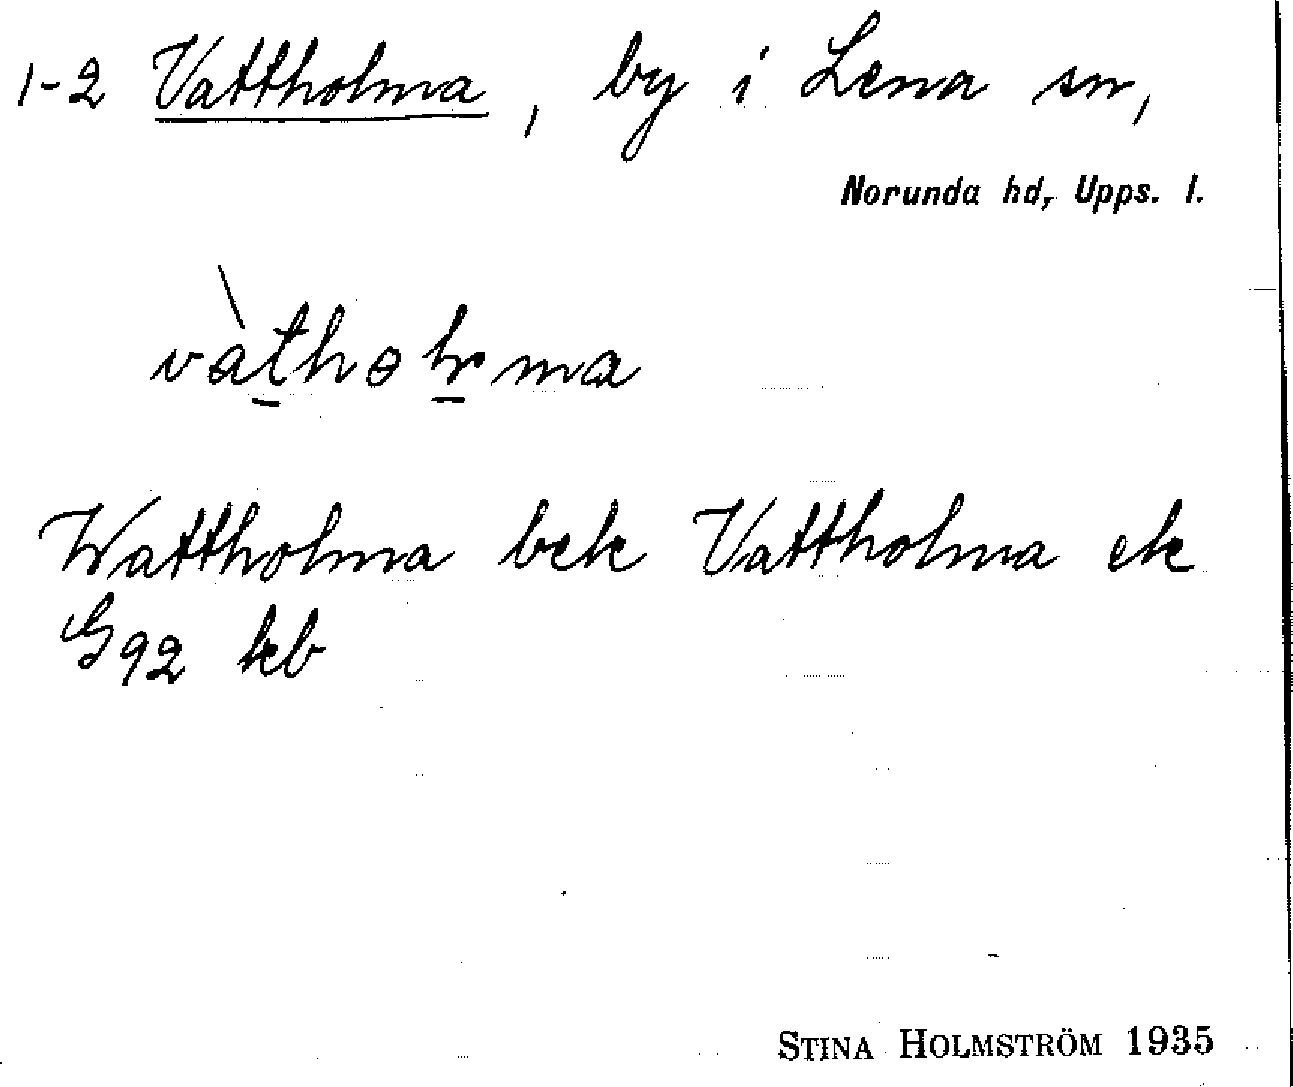 1-2 Vattholma, by i Lena sn,
Norunda hd, Upps. l.
Wattholma bek Vattholma ek
G92 kb
STINA HOLMSTRÖM 1935